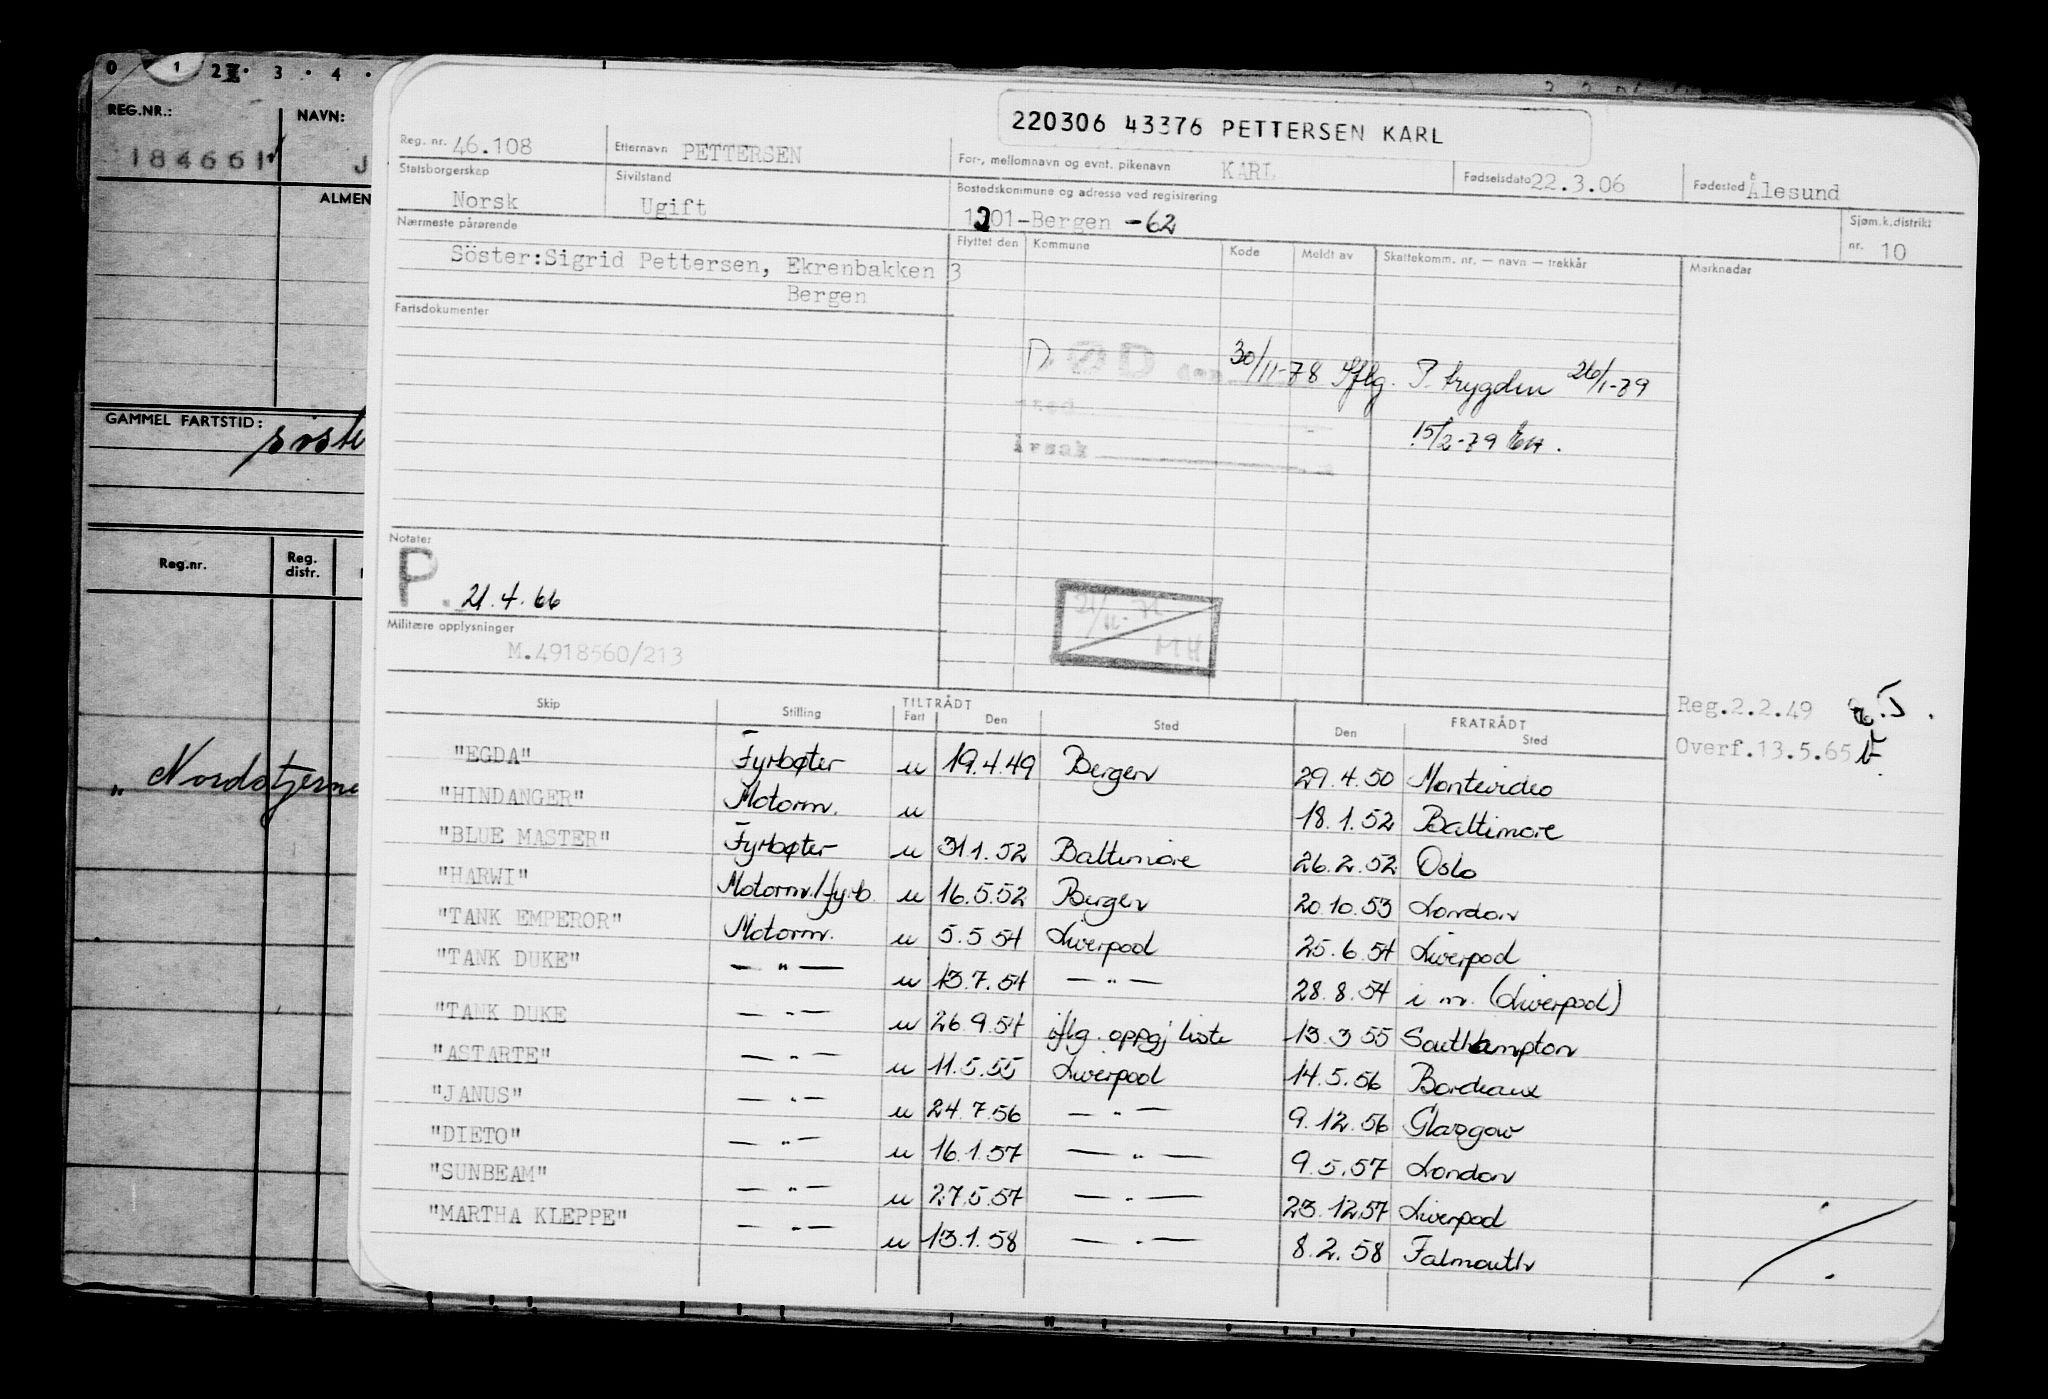 0 1 2 3 4
REG.NR.: NAVN:
184661 J
ALMEN
GAMMEL FARTSTID:
Reg.nr. Reg. distr.
" Nordstjerne
220306 43376 PETTERSEN KARL
Reg. nr. 46.108 Etternavn PETTERSEN For-, mellomnavn og evnt. pikenavn KARL Fødselsdato 22.3.06 Fødested Ålesund
Statsborgerskap Norsk Sivilstand Ugift Bostedskommune og adresse ved registrering 1201-Bergen -62 Sjøm.k.distrikt nr. 10
Nærmeste pårørende Flyttet den Kommune Kode Meldt av Skattekomm. nr. — navn — trekkår Merknader
Söster:Sigrid Pettersen, Ekrenbakken 3
Bergen
Fartsdokumenter
DØD den 30/11-78 Iflg. P. trygden 26/1-79
sted
15/2-79
årsak
Notater
P. 21.4.66
Militære opplysninger
M.4918560/213
21/11-72
MH
Reg.2.2.49
Overf.13.5.65
Skip Stilling TILTRÅDT Fart Den Sted FRATRÅDT Den Sted
"EGDA" Fyrbøter u 19.4.49 Bergen 29.4.50 Montevideo
"HINDANGER" Motorm. u 18.1.52 Baltimore
"BLUE MASTER" Fyrbøter u 31.1.52 Baltimore 26.2.52 Oslo
"HARWI" Motorm./fyrb. u 16.5.52 Bergen 20.10.53 London
"TANK EMPEROR" Motorm. u 5.5.54 Liverpool 25.6.54 Liverpool
"TANK DUKE" — " — u 13.7.54 — " — 28.8.54 i.m. (Liverpool)
"TANK DUKE — " — u 26.9.54 iflg. oppgj liste 13.3.55 Southampton
"ASTARTE" — " — u 11.5.55 Liverpool 14.5.56 Bordeaux
"JANUS" — " — u 24.7.56 — " — 9.12.56 Glasgow
"DIETO" — " — u 16.1.57 — " — 9.5.57 London
"SUNBEAM" — " — u 27.5.57 — " — 23.12.57 Liverpool
"MARTHA KLEPPE" — " — u 13.1.58 — " — 8.2.58 Falmouth